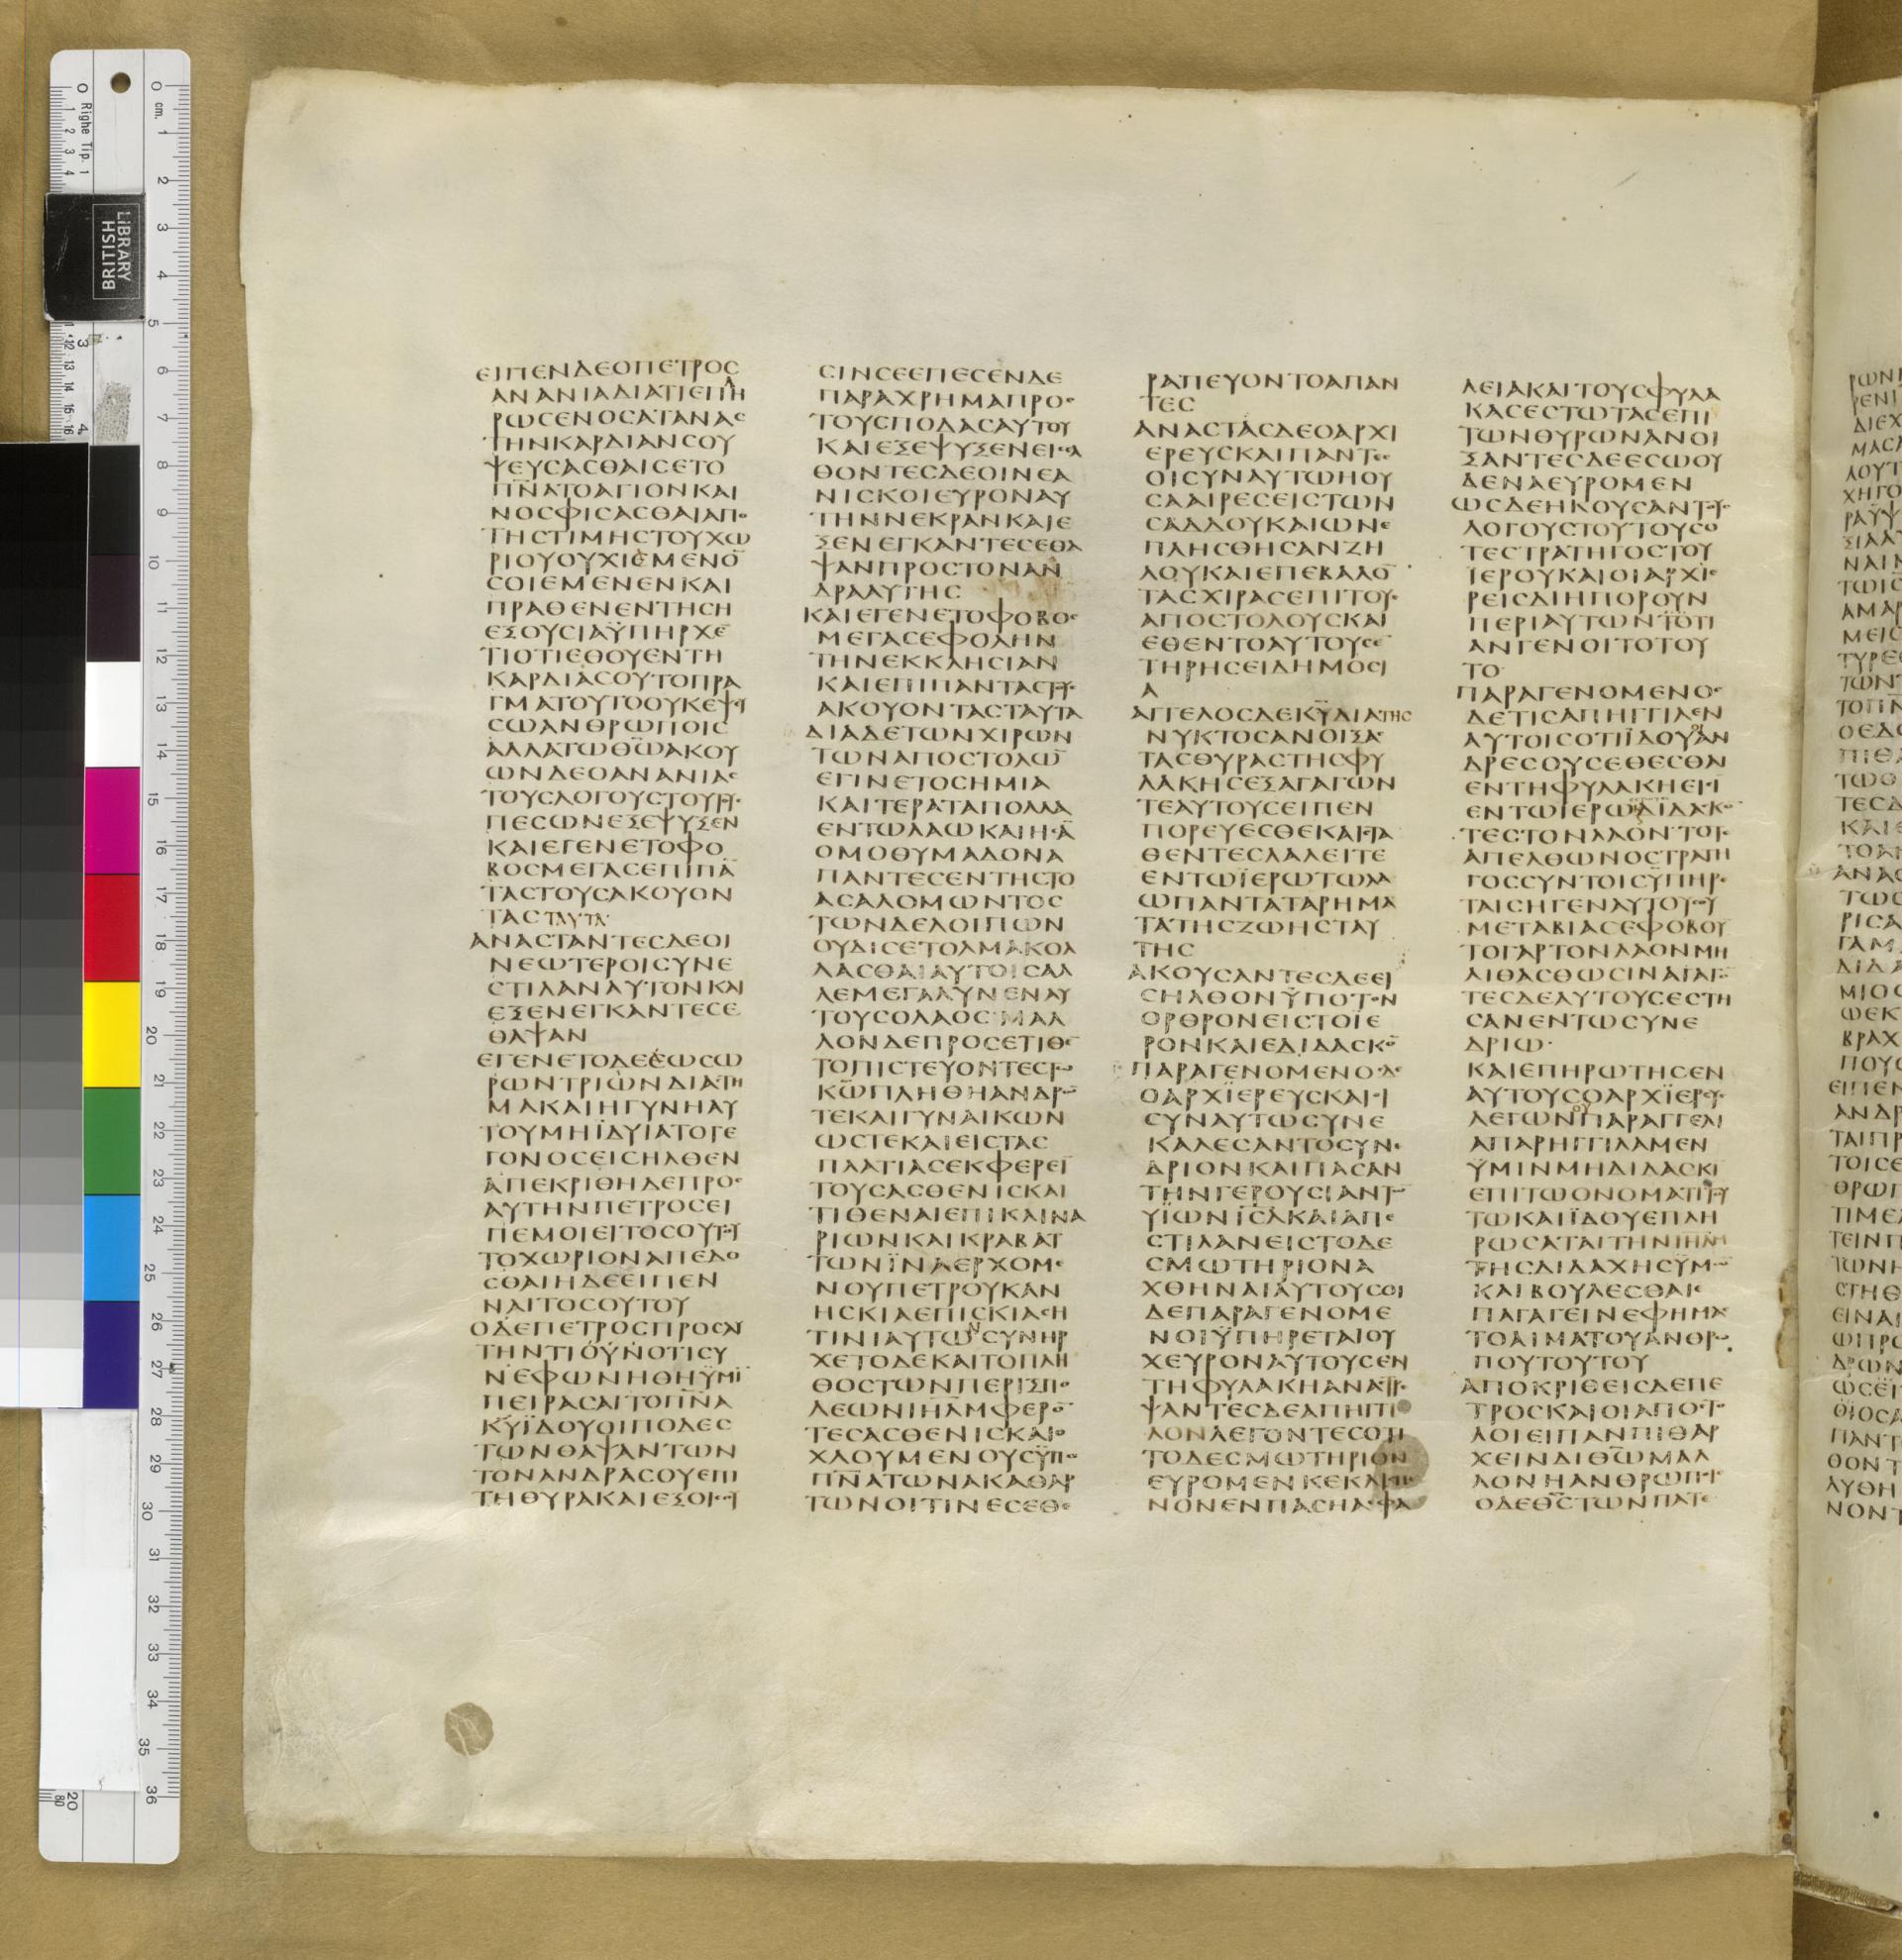 ΕΙΠΕΝΔΕΟΠΕΤΡΟϹ
ΑΝΑΝΙΑΔΙΑΤΙΕΠΗ
ΡΩϹΕΝΟϹΑΤΑΝΑϹ
ΤΗΝΚΑΡΔΙΑΝϹΟΥ
ΨΕΥϹΑϹΘΑΙϹΕΤΟ
ΠΝ̅ΑΤΟΑΓΙΟΝΚΑΙ
ΝΟϹΦΙϹΑϹΘΑΙΑΠΟ
ΤΗϹΤΙΜΗϹΤΟΥΧΩ
ΡΙΟΥΟΥΧΙΕΜΕΝΟ̅
ϹΟΙΕΜΕΝΕΝΚΑΙ
ΠΡΑΘΕΝΕΝΤΗϹΗ
ΕΞΟΥϹΙΑΫΠΗΡΧΕ̅
ΤΙΟΤΙΕΘΟΥΕΝΤΗ
ΚΑΡΔΙΑϹΟΥΤΟΠΡΑ
ΓΜΑΤΟΥΤΟΟΥΚΕΨΕΥ
ϹΩΑΝΘΡΩΠΟΙϹ
ΑΛΛΑΤΩΘ̅Ω̅ΑΚΟΥ
ΩΝΔΕΟΑΝΑΝΙΑϹ
ΤΟΥϹΛΟΓΟΥϹΤΟΥΤΟΥϹ
ΠΕϹΩΝΕΞΕΨΥΞΕΝ
ΚΑΙΕΓΕΝΕΤΟΦΟ
ΒΟϹΜΕΓΑϹΕΠΙΠΑ̅
ΤΑϹΤΟΥϹΑΚΟΥΟΝ
ΤΑϹΤΑΥΤΑ
ΑΝΑϹΤΑΝΤΕϹΔΕΟΙ
ΝΕΩΤΕΡΟΙϹΥΝΕ
ϹΤΙΛΑΝΑΥΤΟΝΚΑΙ
ΕΞΕΝΕΓΚΑΝΤΕϹΕ
ΘΑΨΑΝ
ΕΓΕΝΕΤΟΔΕΕΩϹΩ
ΡΩΝΤΡΙΩΝΔΙΑϹΤΗ
ΜΑΚΑΙΗΓΥΝΗΑΥ
ΤΟΥΜΗΪΔΥΙΑΤΟΓΕ
ΓΟΝΟϹΕΙϹΗΛΘΕΝ
ΑΠΕΚΡΙΘΗΔΕΠΡΟϹ
ΑΥΤΗΝΠΕΤΡΟϹΕΙ
ΠΕΜΟΙΕΙΤΟϹΟΥΤΟΥ
ΤΟΧΩΡΙΟΝΑΠΕΔΟ
ϹΘΑΙΗΔΕΕΙΠΕΝ
ΝΑΙΤΟϹΟΥΤΟΥ
ΟΔΕΠΕΤΡΟϹΠΡΟϹΑΥ
ΤΗΝΤΙΟΥΝΟΤΙϹΥ
ΝΕΦΩΝΗΘΗΫΜΙ̅
ΠΕΙΡΑϹΑΙΤΟΠΝ̅Α
ΚΥ̅ΪΔΟΥΟΙΠΟΔΕϹ
ΤΩΝΘΑΨΑΝΤΩΝ
ΤΟΝΑΝΔΡΑϹΟΥΕΠΙ
ΤΗΘΥΡΑΚΑΙΕΞΟΙϹΟΥ
ϹΙΝϹΕΕΠΕϹΕΝΔΕ
ΠΑΡΑΧΡΗΜΑΠΡΟϹ
ΤΟΥϹΠΟΔΑϹΑΥΤΟΥ
ΚΑΙΕΞΕΨΥΞΕΝΕΙϹΕΛ
ΘΟΝΤΕϹΔΕΟΙΝΕΑ
ΝΙϹΚΟΙΕΥΡΟΝΑΥ
ΤΗΝΝΕΚΡΑΝΚΑΙΕ
ΞΕΝΕΓΚΑΝΤΕϹΕΘΑ
ΨΑΝΠΡΟϹΤΟΝΑΝ
ΔΡΑΑΥΤΗϹ
ΚΑΙΕΓΕΝΕΤΟΦΟΒΟϹ
ΜΕΓΑϹΕΦΟΛΗΝ
ΤΗΝΕΚΚΛΗϹΙΑΝ
ΚΑΙΕΠΙΠΑΝΤΑϹΤΟΥϹ
ΑΚΟΥΟΝΤΑϹΤΑΥΤΑ
ΔΙΑΔΕΤΩΝΧΙΡΩΝ
ΤΩΝΑΠΟϹΤΟΛΩ̅
ΕΓΙΝΕΤΟϹΗΜΙΑ
ΚΑΙΤΕΡΑΤΑΠΟΛΛΑ
ΕΝΤΩΛΑΩΚΑΙΗϹΑ̅
ΟΜΟΘΥΜΑΔΟΝΑ
ΠΑΝΤΕϹΕΝΤΗϹΤΟ
ΑϹΑΛΟΜΩΝΤΟϹ
ΤΩΝΔΕΛΟΙΠΩΝ
ΟΥΔΙϹΕΤΟΛΜΑΚΟΛ
ΛΑϹΘΑΙΑΥΤΟΙϹΑΛ
ΛΕΜΕΓΑΛΥΝΕΝΑΥ
ΤΟΥϹΟΛΑΟϹΜΑΛ
ΛΟΝΔΕΠΡΟϹΕΤΙΘΕ̅
ΤΟΠΙϹΤΕΥΟΝΤΕϹΤΩ
Κ̅Ω̅ΠΛΗΘΗΑΝΔΡΩ̅
ΤΕΚΑΙΓΥΝΑΙΚΩΝ
ΩϹΤΕΚΑΙΕΙϹΤΑϹ
ΠΛΑΤΙΑϹΕΚΦΕΡΕΙ̅
ΤΟΥϹΑϹΘΕΝΙϹΚΑΙ
ΤΙΘΕΝΑΙΕΠΙΚΛΙΝΑ
ΡΙΩΝΚΑΙΚΡΑΒΑΤ
ΤΩΝΪΝΑΕΡΧΟΜΕ
ΝΟΥΠΕΤΡΟΥΚΑΝ
ΗϹΚΙΑΕΠΙϹΚΙΑϹΗ
ΤΙΝΙΑΥΤΩΝϹΥΝΗΡ
ΧΕΤΟΔΕΚΑΙΤΟΠΛΗ
ΘΟϹΤΩΝΠΕΡΙΞΠΟ
ΛΕΩΝΙΗΛΜΦΕΡΟ̅
ΤΕϹΑϹΘΕΝΙϹΚΑΙΟ
ΧΛΟΥΜΕΝΟΥϹΫΠΟ
ΠΝ̅ΑΤΩΝΑΚΑΘΑΡ
ΤΩΝΟΙΤΙΝΕϹΕΘΕ
ΡΑΠΕΥΟΝΤΟΑΠΑΝ
ΤΕϹ
ΑΝΑϹΤΑϹΔΕΟΑΡΧΙ
ΕΡΕΥϹΚΑΙΠΑΝΤΕϹ
ΟΙϹΥΝΑΥΤΩΗΟΥ
ϹΑΑΙΡΕϹΕΙϹΤΩΝ
ϹΑΔΔΟΥΚΑΙΩΝΕ
ΠΛΗϹΘΗϹΑΝΖΗ
ΛΟΥΚΑΙΕΠΕΒΑΛΟ̅
ΤΑϹΧΙΡΑϹΕΠΙΤΟΥϹ
ΑΠΟϹΤΟΛΟΥϹΚΑΙ
ΕΘΕΝΤΟΑΥΤΟΥϹΕ̅
ΤΗΡΗϹΕΙΔΗΜΟϹΙ
Α
ΑΓΓΕΛΟϹΔΕΚ̅Υ̅ΔΙΑΤΗϹ
ΝΥΚΤΟϹΑΝΟΙΞΑϹ
ΤΑϹΘΥΡΑϹΤΗϹΦΥ
ΛΑΚΗϹΕΞΑΓΑΓΩΝ
ΤΕΑΥΤΟΥϹΕΙΠΕΝ
ΠΟΡΕΥΕϹΘΕΚΑΙϹΤΑ
ΘΕΝΤΕϹΛΑΛΕΙΤΕ
ΕΝΤΩΪΕΡΩΤΩΛΑ
ΩΠΑΝΤΑΤΑΡΗΜΑ
ΤΑΤΗϹΖΩΗϹΤΑΥ
ΤΗϹ
ΑΚΟΥϹΑΝΤΕϹΔΕΕΙ
ϹΗΛΘΟΝΫΠΟΤΟΝ
ΟΡΘΡΟΝΕΙϹΤΟΪΕ
ΡΟΝΚΑΙΕΔΙΔΑϹΚΟ̅
ΠΑΡΑΓΕΝΟΜΕΝΟϹΔΕ
ΟΑΡΧΪΕΡΕΥϹΚΑΙΟΙ
ϹΥΝΑΥΤΩϹΥΝΕ
ΚΑΛΕϹΑΝΤΟϹΥΝΕ
ΔΡΙΟΝΚΑΙΠΑϹΑΝ
ΤΗΝΓΕΡΟΥϹΙΑΝΤΩ̅
ΥΪΩΝΙϹΛΚΑΙΑΠΕ
ϹΤΙΛΑΝΕΙϹΤΟΔΕ
ϹΜΩΤΗΡΙΟΝΑ
ΧΘΗΝΑΙΑΥΤΟΥϹΟΙ
ΔΕΠΑΡΑΓΕΝΟΜΕ
ΝΟΙΫΠΗΡΕΤΑΙΟΥ
ΧΕΥΡΟΝΑΥΤΟΥϹΕΝ
ΤΗΦΥΛΑΚΗΑΝΑϹΤΡΕ
ΨΑΝΤΕϹΔΕΑΠΗΓΓΙ
ΛΟΝΛΕΓΟΝΤΕϹΟΤΙ
ΤΟΔΕϹΜΩΤΗΡΙΟΝ
ΕΥΡΟΜΕΝΚΕΚΛΙϹΜΕ
ΝΟΝΕΝΠΑϹΗΑϹΦΑ
ΛΕΙΑΚΑΙΤΟΥϹΦΥΛΑ
ΚΑϹΕϹΤΩΤΑϹΕΠΙ
ΤΩΝΘΥΡΩΝΑΝΟΙ
ΞΑΝΤΕϹΔΕΕϹΩΟΥ
ΔΕΝΑΕΥΡΟΜΕΝ
ΩϹΔΕΗΚΟΥϹΑΝΤΟΥϹ
ΛΟΓΟΥϹΤΟΥΤΟΥϹΟ
ΤΕϹΤΡΑΤΗΓΟϹΤΟΥ
ΪΕΡΟΥΚΑΙΟΙΑΡΧΙΕ
ΡΕΙϹΔΙΗΠΟΡΟΥΝ
ΠΕΡΙΑΥΤΩΝΤΟΤΙ
ΑΝΓΕΝΟΙΤΟΤΟΥ
ΤΟ
ΠΑΡΑΓΕΝΟΜΕΝΟϹ
ΔΕΤΙϹΑΠΗΓΓΙΛΕΝ
ΑΥΤΟΙϹΟΤΙΪΔΟΥΟΙΑΝ
ΔΡΕϹΟΥϹΕΘΕϹΘΑΙ
ΕΝΤΗΦΥΛΑΚΗΕΙϹΙ
ΕΝΤΩΪΕΡΩΔΙΔΑϹΚΟ̅
ΤΕϹΤΟΝΛΑΟΝΤΟΤΕ
ΑΠΕΛΘΩΝΟϹΤΡΑΤΗ
ΓΟϹϹΥΝΤΟΙϹΫΠΗΡΕ
ΤΑΙϹΗΓΕΝΑΥΤΟΥϹΟΥ
ΜΕΤΑΒΙΑϹΕΦΟΒΟΥ̅
ΤΟΓΑΡΤΟΝΛΑΟΝΜΗ
ΛΙΘΑϹΘΩϹΙΝΑΓΑΓΟ̅
ΤΕϹΔΕΑΥΤΟΥϹΕϹΤΗ
ϹΑΝΕΝΤΩϹΥΝΕ
ΔΡΙΩ
ΚΑΙΕΠΗΡΩΤΗϹΕΝ
ΑΥΤΟΥϹΟΑΡΧΪΕΡΕΥϹ
ΛΕΓΩΝΟΥΠΑΡΑΓΓΕΛΙ
ΑΠΑΡΗΓΓΙΛΑΜΕΝ
ΫΜΙΝΜΗΔΙΔΑϹΚΙ̅
ΕΠΙΤΩΟΝΟΜΑΤΙΤΟΥ
ΤΩΚΑΙΪΔΟΥΕΠΛΗ
ΡΩϹΑΤΑΙΤΗΝΙΗΛΜ
ΤΗϹΔΙΔΑΧΗϹΫΜΩ̅
ΚΑΙΒΟΥΛΕϹΘΑΙΕ
ΠΑΓΑΓΕΙΝΕΦΗΜΑϹ
ΤΟΑΙΜΑΤΟΥΑΝΘΡΩ
ΠΟΥΤΟΥΤΟΥ
ΑΠΟΚΡΙΘΕΙϹΔΕΠΕ
ΤΡΟϹΚΑΙΟΙΑΠΟϹΤΟ
ΛΟΙΕΙΠΑΝΠΙΘΑΡ
ΧΕΙΝΔΙΘ̅Ω̅ΜΑΛ
ΛΟΝΗΑΝΘΡΩΠΟΙϹ
ΟΔΕΘ̅Ϲ̅ΤΩΝΠΑΤΕ